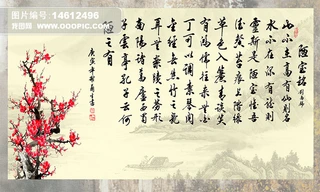 编号：14612496
WWW.OOOPIC.COM
陋室铭
山不在高有仙则名
水不在深有龙则
灵斯是陋室惟吾
德馨苔痕上阶绿
草色入帘青谈笑
有鸿儒往来无白
丁可以调素琴阅
金经无丝竹之乱
耳无案牍之劳形
南阳诸葛庐西蜀
子云亭孔子云何
陋之有